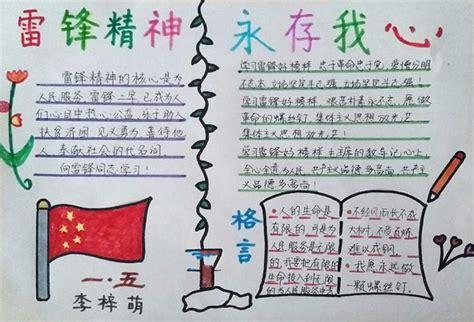 雷锋精神 永存我心
雷锋精神的核心是为
人民服务,雷锋二字已成为人
们心目中热心公益、乐于助人、
扶贫济困、见义勇为、善待他
人、奉献社会的代名词。
向雷锋同志学习!
学习雷锋好榜样 忠于革命忠于党 爱憎分明
不忘本 立场坚定斗志强 立场坚定斗志强!
学习雷锋好榜样 艰苦朴素永不忘 愿做
革命的螺丝钉 集体主义思想放光芒
集体主义思想放光芒!
学习雷锋好榜样 毛主席的教导记心上
全心全意为人民 共产主义品德多高尚 共产主
义品德多高尚!
格言
•人的生命是
有限的,可是为
人民服务是无限
的,我要把有限的
生命投入到无限
的为人民服务中去
•不经风雨,长不成
大树,不受百炼,
难以成钢。
•我愿永远做
一颗螺丝钉。
一.五
李梓萌